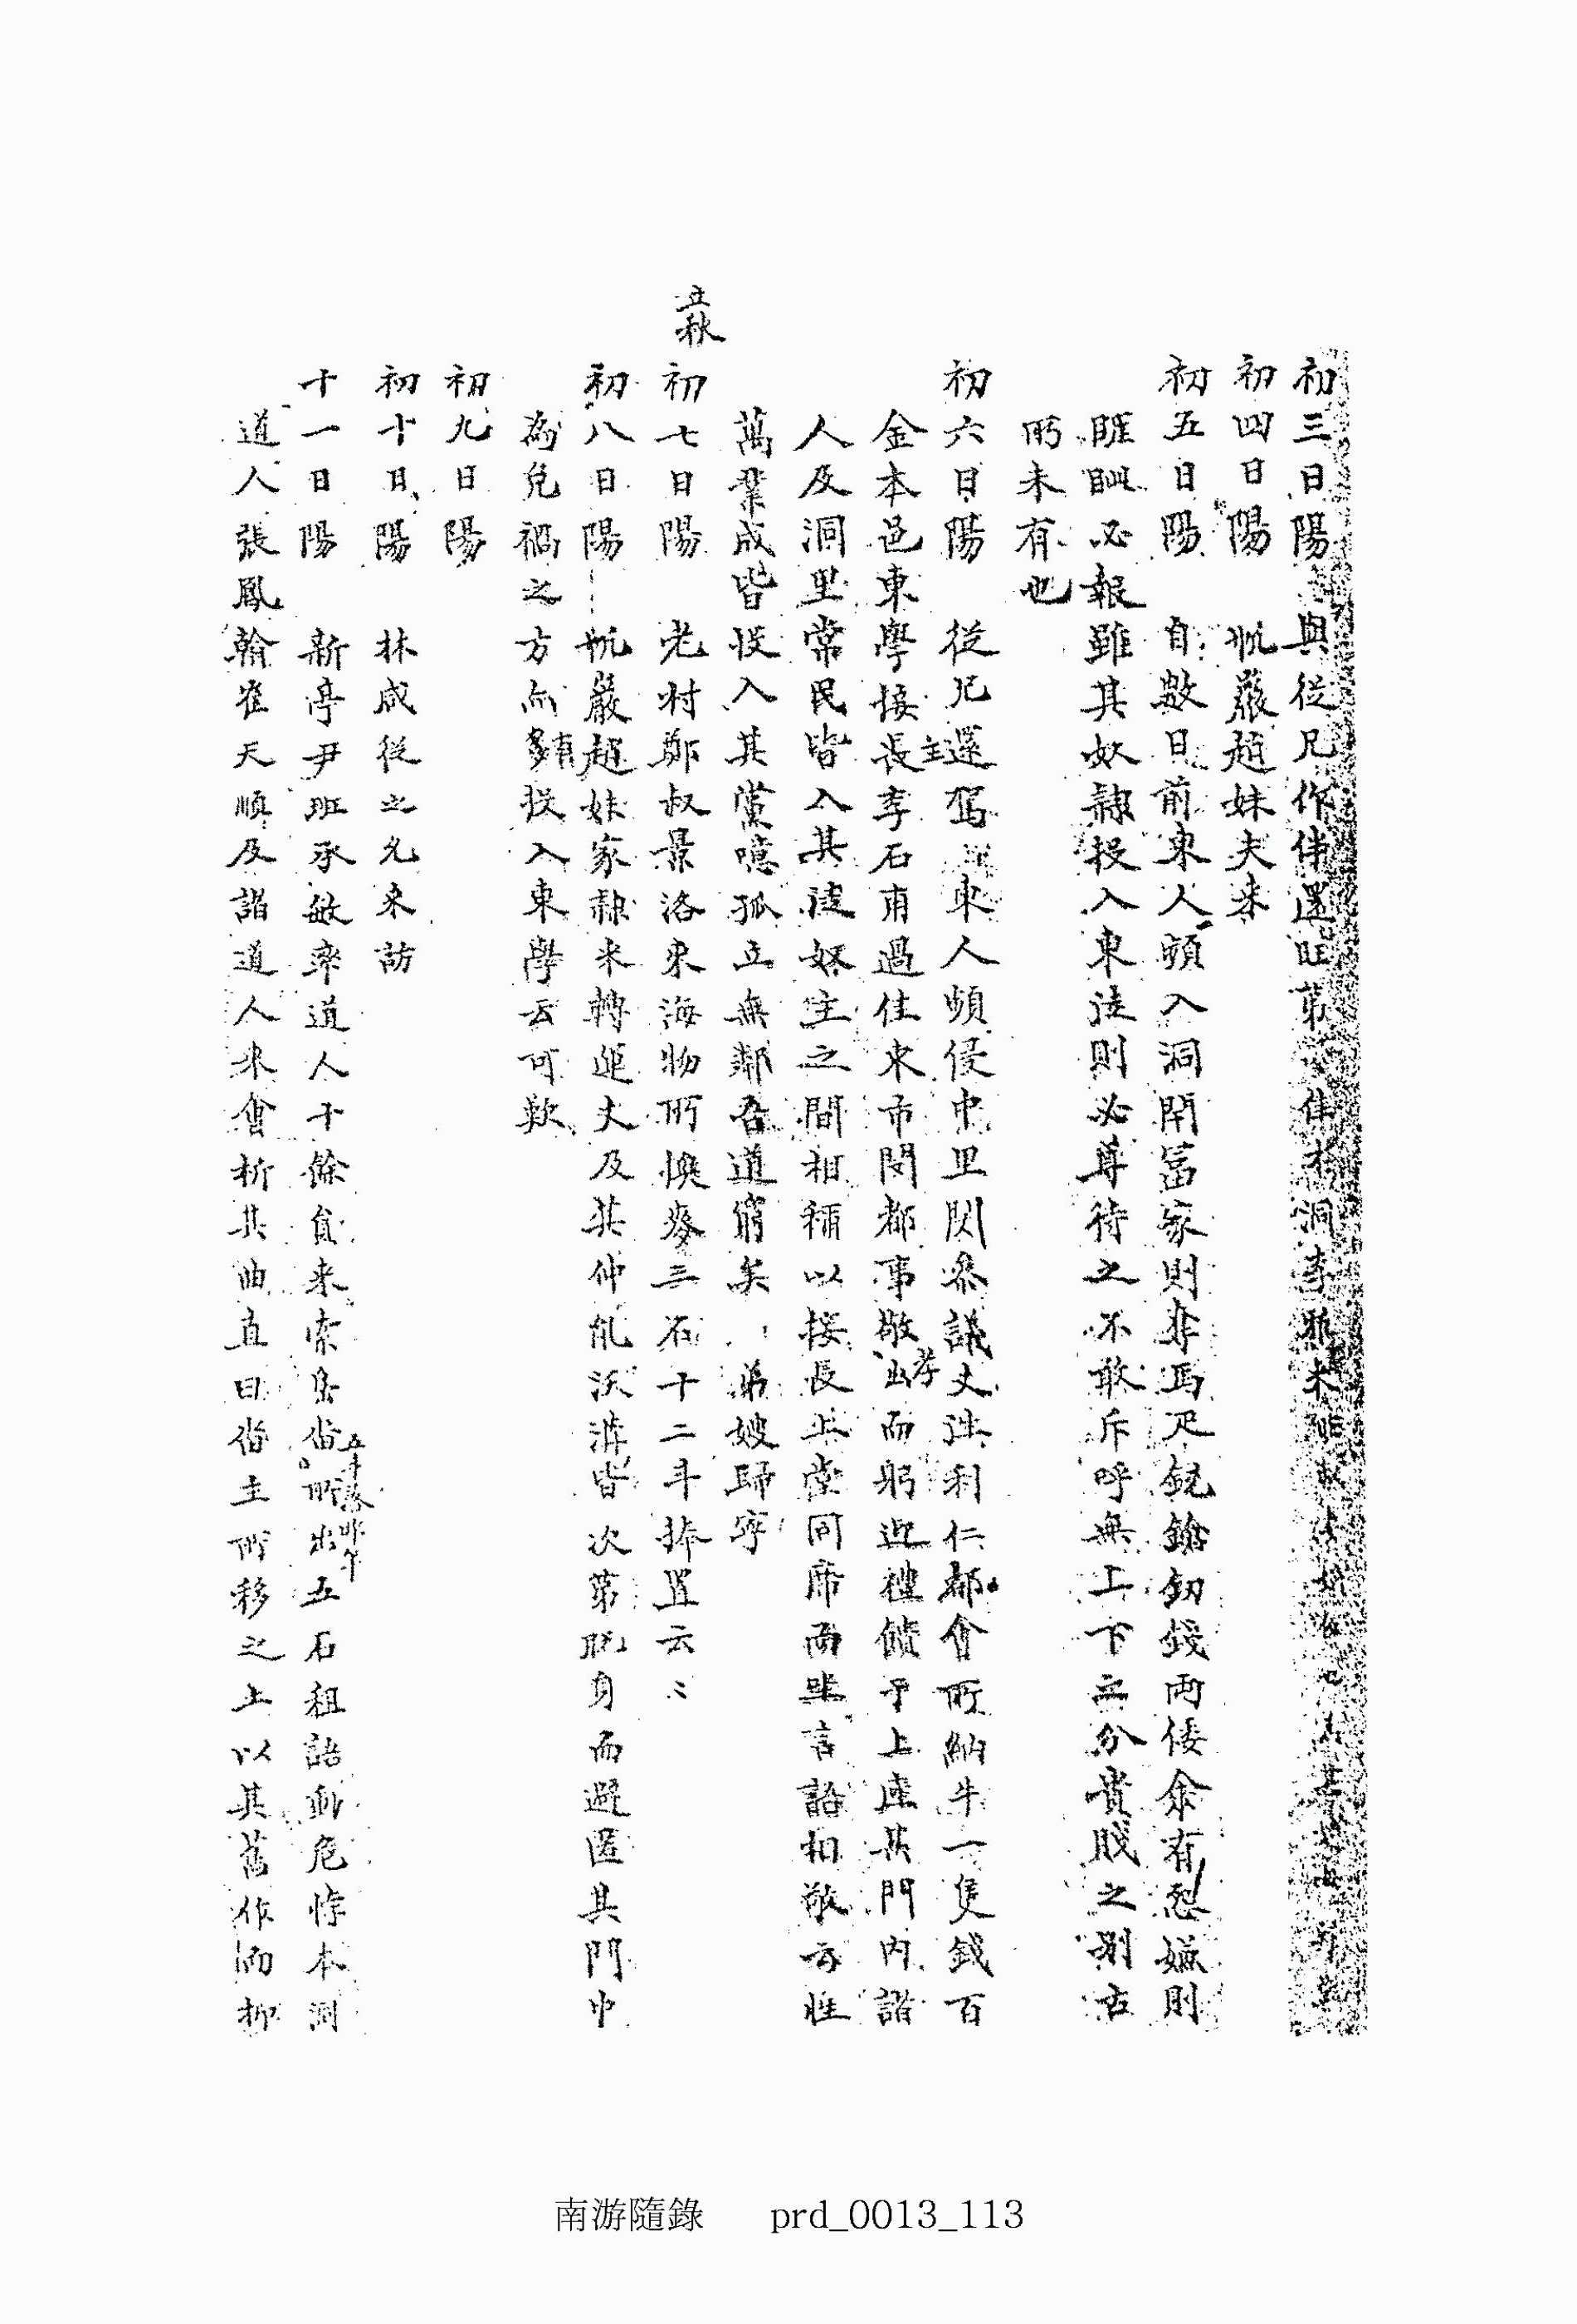 初三日陽 與從兄作伴還旺第 洞李
初四日陽 帆嚴趙妹夫来
初五日陽 自數日前東人頻入洞閈富家則非馬疋銃鎗釰錢兩倭傘有怨嫌則
睚眦必報雖其奴隷投入東徒則必尊待之不敢斥呼無上下之分貴賤之別古
所未有也
初六日陽 從兄還駕 東人頻侵中里閔叅議丈洪利仁都會所納牛一隻錢百
金本邑東學接長主李石甫過佳東市閔都事敬出而躬迎禮饋于上座其門內諸
人及洞里常民皆入其徒奴主之間相稱以接長上堂同席而坐言語相敬云性
萬業成皆投入其黨噫孤立無鄰吾道窮矣 弟嫂歸寧
立秋
初七日陽 光村鄭叔景洛來海物所換麥三石十二斗捧置云〻
初八日陽 帆嚴趙妹家隷来轉運丈及其仲胤沃溝皆次第脫身而避匿其門中
為免禍之方而多有投入東學云可歎
初九日陽
初十日陽 林咸從之允来訪
十一日陽 新亭尹班承敏率道人十餘員来索 畓所出五石租語動危悖本洞
道人張鳳翰崔天順及諸道人来會析其曲直曰畓主所移之上以其舊作而抑
南游隨錄 prd_0013_113